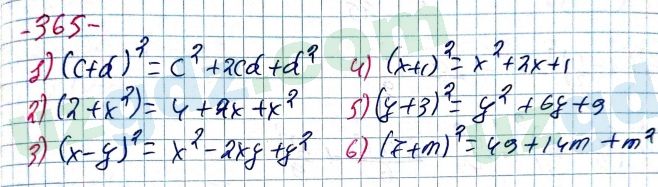 -365-
1) (c+d)² = c² + 2cd + d²
2) (2 + x²) = 4 + 4x + x²
3) (x-y)² = x² - 2xy + y²
4) (x+1)² = x² + 2x + 1
5) (y+3)² = y² + 6y + 9
6) (7+m)² = 49 + 14m + m²